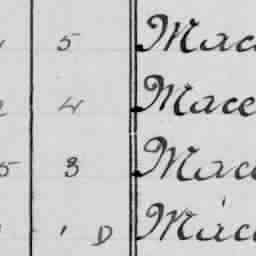 5 Mac
4 Mace
5 3 Mac
1 D Mac